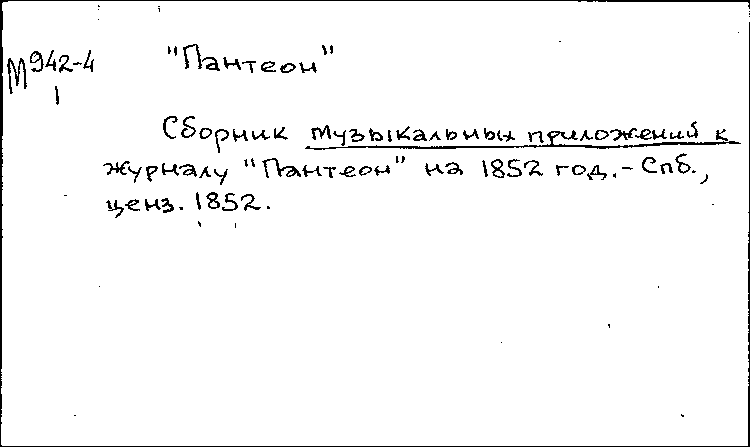 М942-4 "Пантеон"
1
Сборник музыкальных приложений к
журналу "Пантеон" на 1852 год.- Спб.,
ценз. 1852.